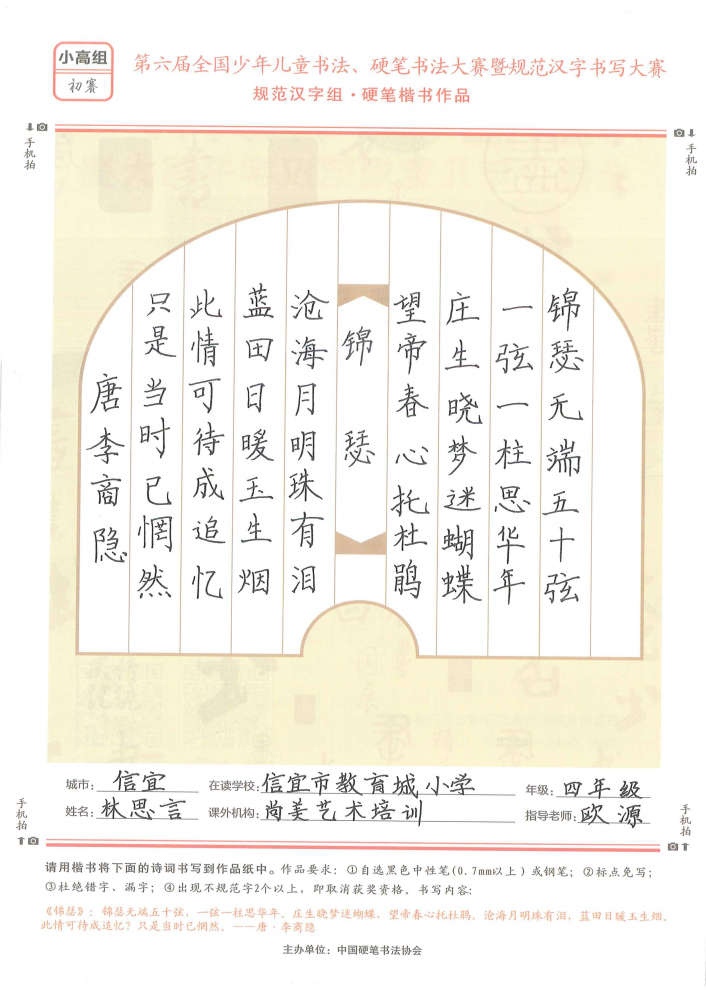 小高组
初赛
第六届全国少年儿童书法、硬笔书法大赛暨规范汉字书写大赛
规范汉字组·硬笔楷书作品
手机拍
手机拍
锦瑟无端五十弦
一弦一柱思华年
庄生晓梦迷蝴蝶
望帝春心托杜鹃
锦瑟
沧海月明珠有泪
蓝田日暖玉生烟
此情可待成追忆
只是当时已惘然
唐李商隐
手机拍
手机拍
城市：信宜 在读学校：信宜市教育城小学 年级：四年级
姓名：林思言 课外机构：尚美艺术培训 指导老师：欧源
请用楷书将下面的诗词书写到作品纸中。作品要求：①自选黑色中性笔(0.7mm以上）或钢笔；②标点免写；
③杜绝错字、漏字；④出现不规范字2个以上，即取消获奖资格。书写内容：
《锦瑟》：锦瑟无端五十弦，一弦一柱思华年。庄生晓梦迷蝴蝶，望帝春心托杜鹃。沧海月明珠有泪，蓝田日暖玉生烟。
此情可待成追忆？只是当时已惘然。——唐·李商隐
主办单位：中国硬笔书法协会